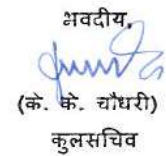 भवदीय,
(के. के. चौधरी)
कुलसचिव